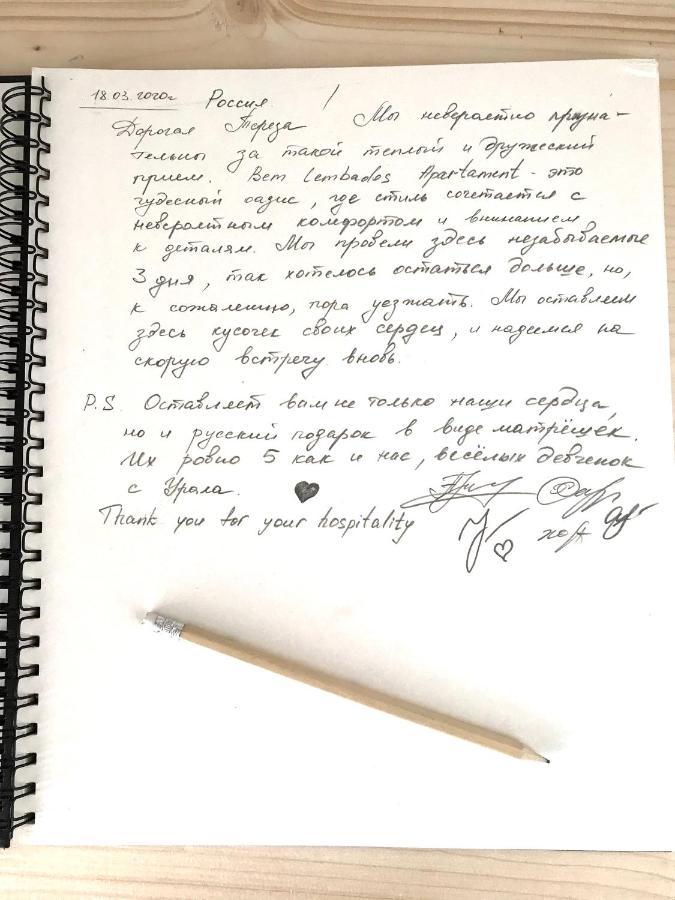 18.03.2020г Россия /
Дорогая Тереза Мы невероятно призна-
тельны за такой теплый и дружеский
прием. Bem Lembados Apartament - это
чудесный оазис, где стиль сочетается с
невероятным комфортом и вниманием
к деталям. Мы провели здесь незабываемые
3 дня, так хотелось остаться дольше, но,
к сожалению, пора уезжать. Мы оставляем
здесь кусочек своих сердец, и надимся на
скорую встречу вновь.
P.S. Оставляет вам не только наши сердца,
но и русский подарок в виде матрёшек.
Их ровно 5 как и нас, весёлых девченок
с Урала.
Thank you for your hospitality